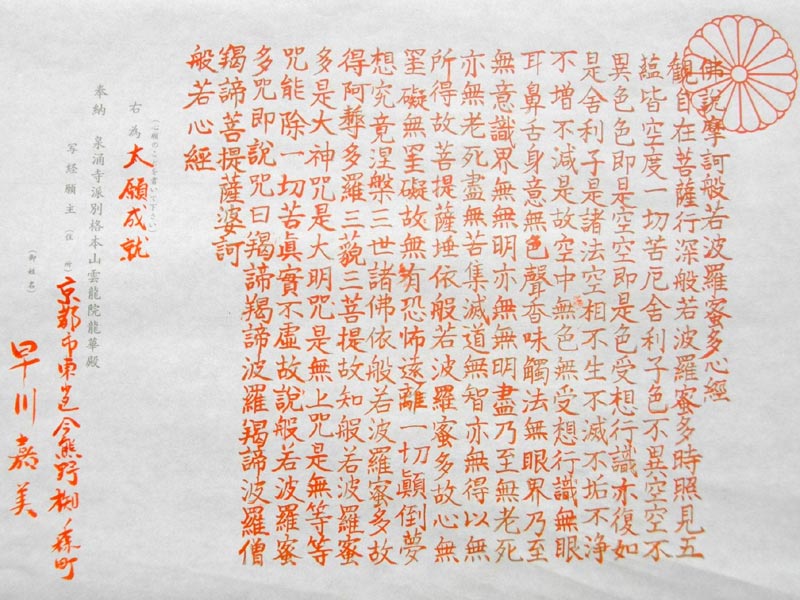 佛説摩訶般若波羅蜜多心經
観自在菩薩行深般若波羅蜜多時照見五
蘊皆空度一切苦厄舎利子色不異空空不
異色色即是空空即是色受想行識亦復如
是舎利子是諸法空相不生不滅不垢不浄
不增不減是故空中無色無受想行識無眼
耳鼻舌身意無色聲香味觸法無眼界乃至
無意識界無無明亦無無明盡乃至無老死
亦無老死盡無苦集滅道無智亦無得以無
所得故菩提薩埵依般若波羅蜜多故心無
罣礙無罣礙故無有恐怖遠離一切顛倒夢
想究竟涅槃三世諸佛依般若波羅蜜多故
得阿耨多羅三藐三菩提故知般若波羅蜜
多是大神咒是大明咒是無上咒是無等等
咒能除一切苦眞實不虚故説般若波羅蜜
多咒即説咒曰羯諦羯諦波羅羯諦波羅僧
羯諦菩提薩婆訶
般若心經
(心願のことを書いて下さい)
右為 大願成就
奉納 泉涌寺派別格本山雲龍院龍華殿
写経願主 (住所) 京都市東 今熊野椥ノ森町
(御姓名) 早川嘉美